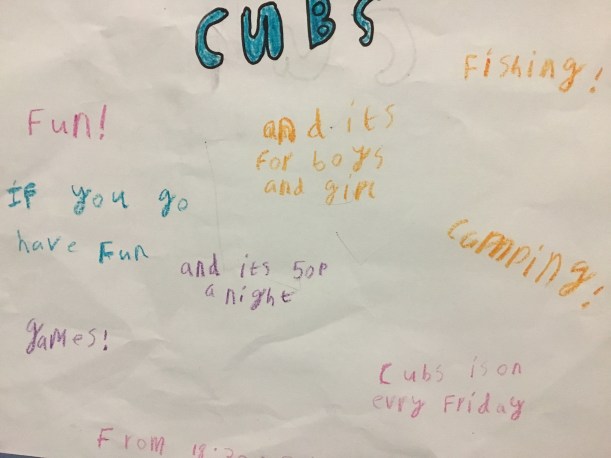 CUBS
Fishing!
Fun!
and its
for boys
and girl
If you go
have Fun
and its 50p
a night
camping!
games!
Cubs is on
evry Friday
From 18:30